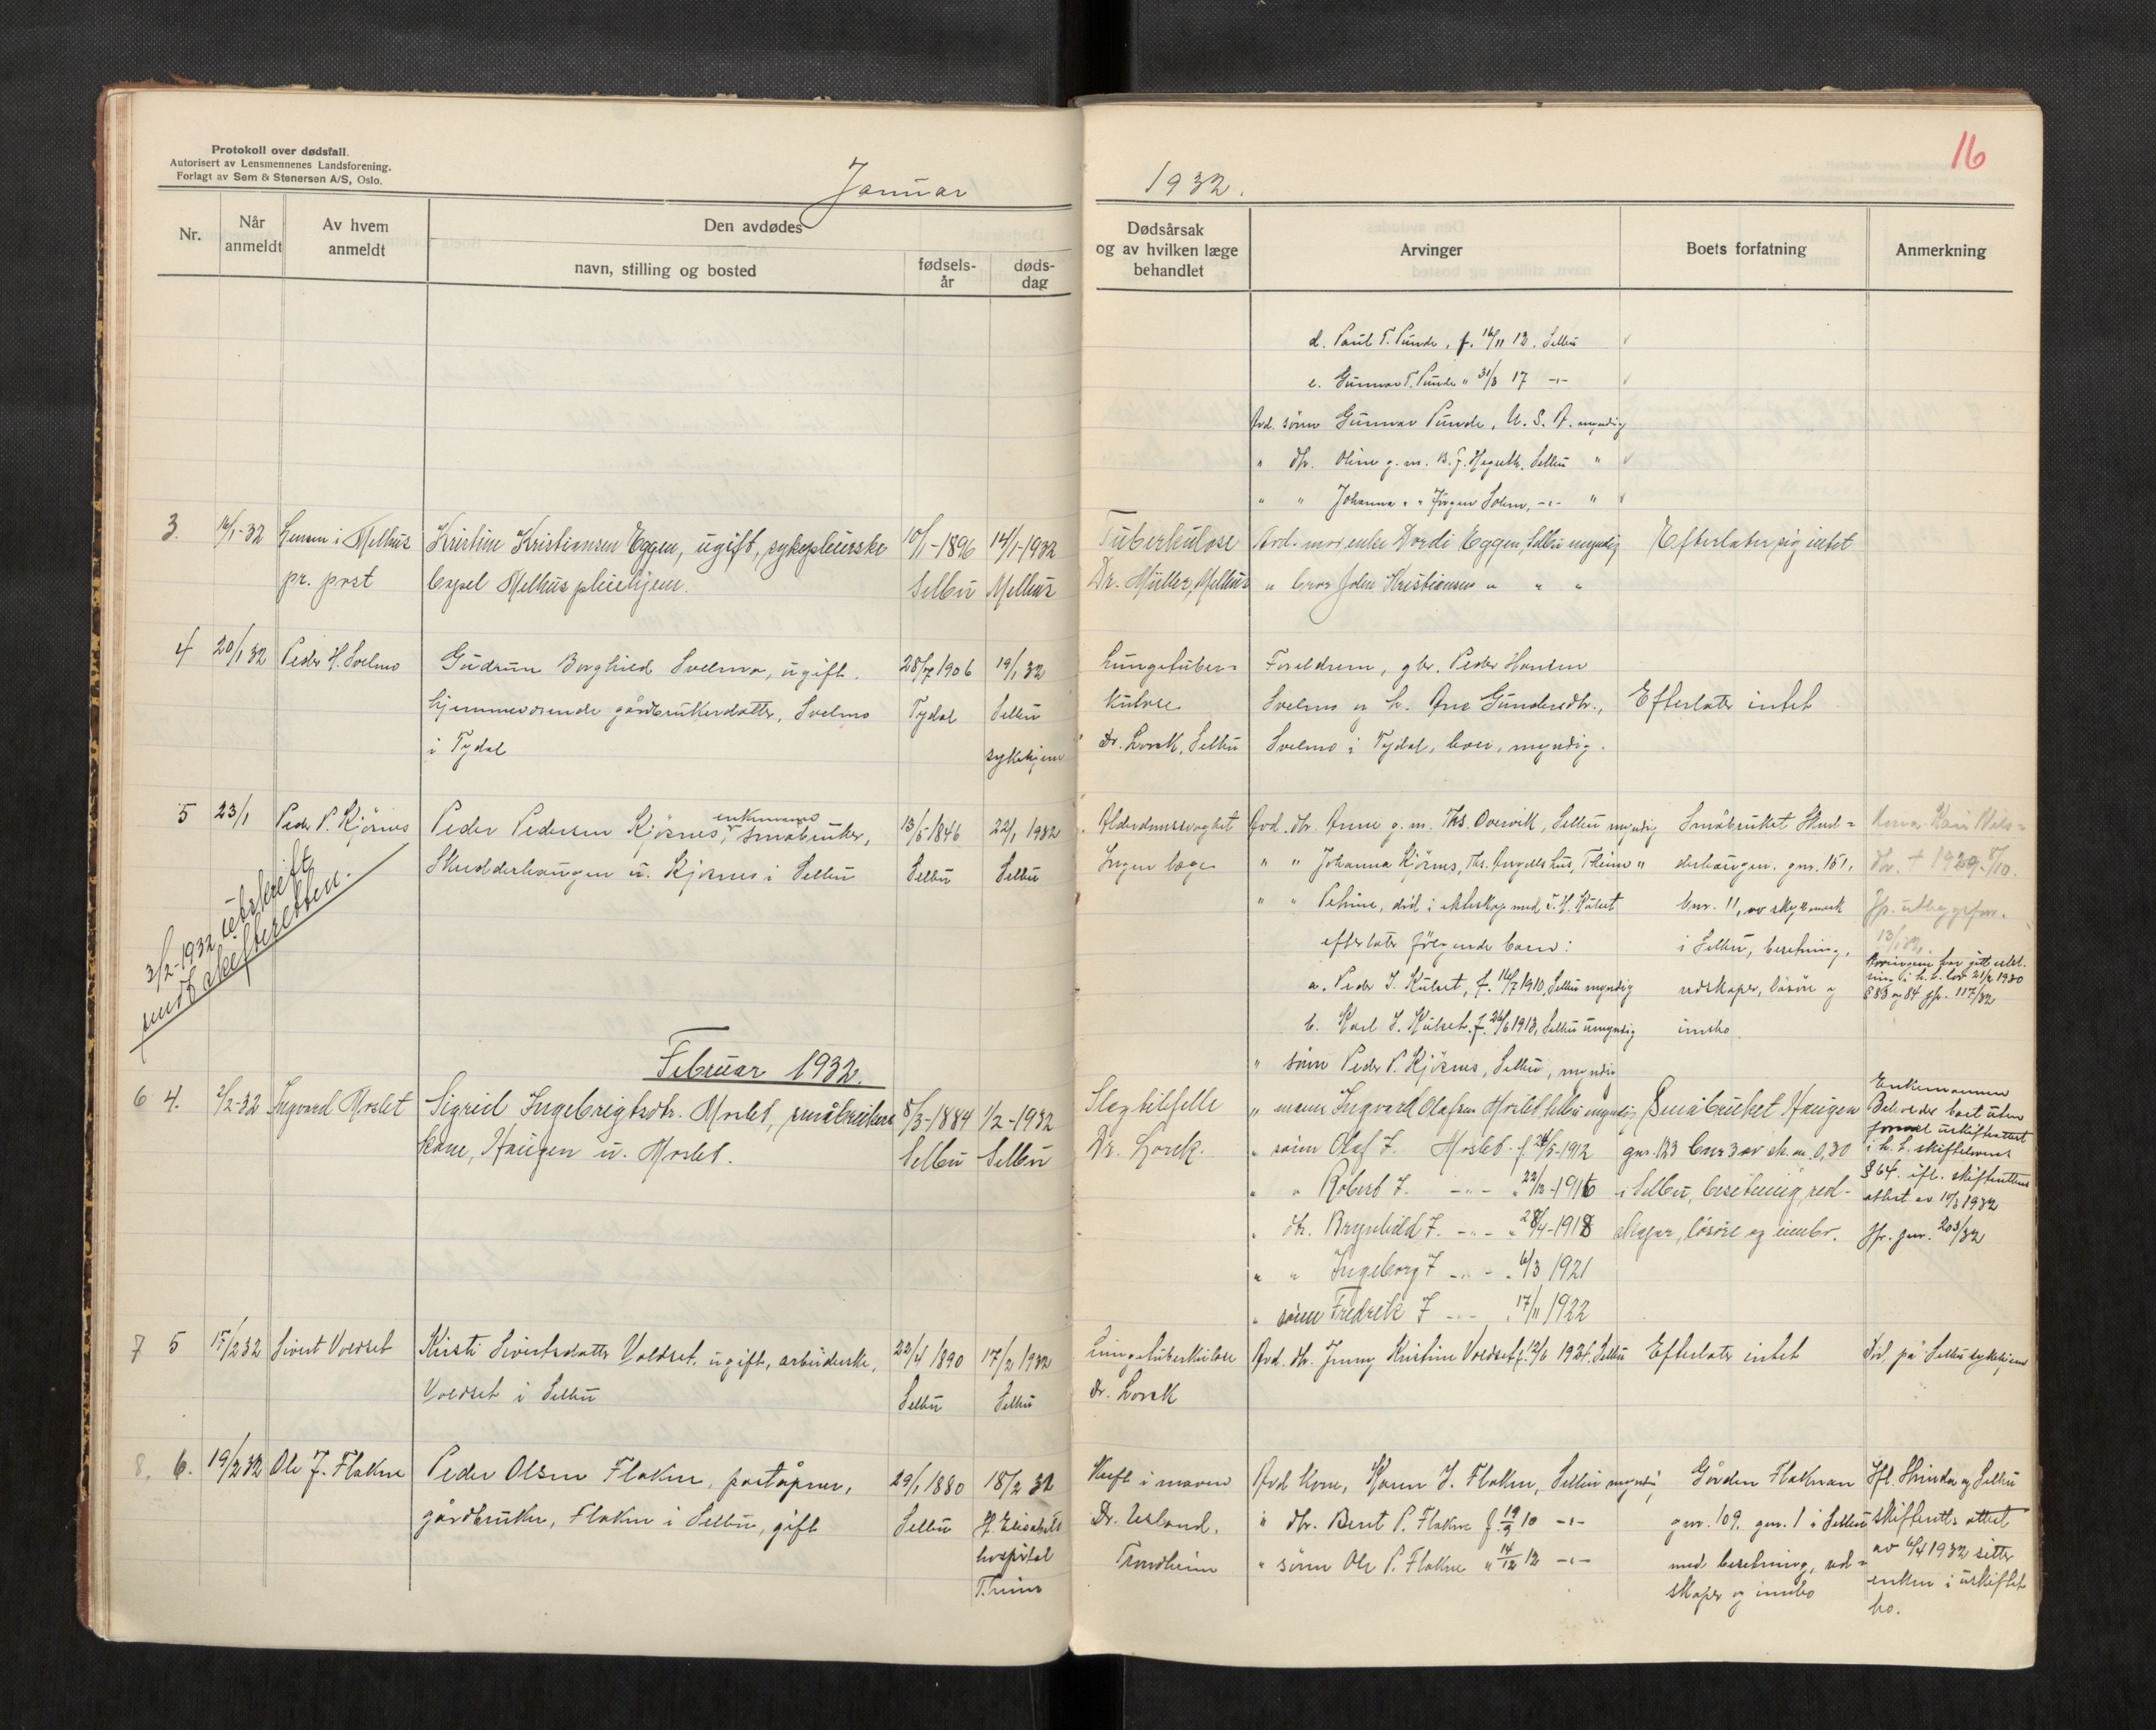 Protokoll over dødsfall.
Autorisert av Lensmennenes Landsforening.
Forlagt av Sem & Stenersen A/S, Oslo.
Januar
Nr.
Når anmeldt
Av hvem anmeldt
Den avdødes
navn, stilling og bosted
fødsels-
år
døds-
dag
3. 16/1-32 Lensm i Melhus Kristine Kristiansen Eggen, ugift, sykepleierske 10/1-1896 14/1-1932
pr. post Melhus pleiehjem. Selbu Melhus
4 20/1 32 Peder H. Svelmo Gudrun Borghild Svelmo, ugift. 28/7 1906 19/1 32
hjemmeværende gårdbrukerdatter, Svelmo Tydal Selbu
i Tydal sykehjem
5 23/1 Peder P. Kjösnes Peder Pedersen Kjösnes, enkemann småbruker, 13/5 1846 22/1 1932
Skudderhaugen u. Kjösnes i Selbu Selbu Selbu
3/2-1932 utskrift
sendt skifteretten.
Februar 1932.
6 4. 2/2-32 Ingvard Moslet Sigrid Ingebrigtsdtr. Moslet, småbruker 8/3-1884 1/2-1932
kone, Haugen u. Moslet. Selbu Selbu
7 5 17/2 32 Sivert Voldset Kirsti Sivertsdatter Voldset, ugift, arbeiderske, 22/4 1890 17/2 1932
Voldset i Selbu Selbu Selbu
8. 6. 19/2 32 Ole J. Flakne Peder Olsen Flakne, poståpner, 29/1 1880 18/2 32
gårdbruker, Flakne i Selbu, gift Selbu St. Elisabeth
hospital
T.heim
1932.
16
Dødsårsak
og av hvilken læge
behandlet
Arvinger
Boets forfatning
Anmerkning
d. Paul T. Punde, f. 16/11 12, Selbu
e. Gunnar T. Punde " 31/3 17 -"-
Avd. sönn Gunnar Punde, U. S. A. myndig
" dtr. Oline g. m. B. J. Hegseth, Selbu "
" " Johanna " " Jörgen Solem, -"- "
Tuberkulose Avd. mor, enke Dordi Eggen, Selbu myndig Efterlater sig intet
Dr. Müller, Melhus " bror John Kristiansen " " "
Lungetuber-
kulose
Dr. Lorck, Selbu
Foreldrene, gbr. Peder Hansen
Svelmo og h. Ane Gundersdtr.,
Svelmo i Tydal, beer, myndig.
Efterlater intet
Alderdomssvaghet
Ingen læge
Avd. dtr. Anne g. m. Ths. Overvik, Selbu myndig
" " Johanna Kjösnes, Ths. Angells hus, T.heim "
" " Petrine, död i ekteskap med J. H. Kulset
efterlater fölgende barn:
a. Peder J. Kulset, f. 16/7 1910, Selbu myndig
b. Karl J. Kulset, f. 26/6 1913, Selbu umyndig
" sönn Peder P. Kjösnes, Selbu, myndig
Småbruket Skud-
derhaugen. gnr. 151,
bnr. 11, av sky mark
i Selbu, besetning,
redskaper, lösöre og
innbo
Kona Kari Nils-
dtr. † 1929.
Jfr.
13/1 32.
Arvingene har gått utlod-
ning i h. t. lov 21/2 1930
§ 83 og 84 jfr. 117/32
Slagtilfelle
Dr. Lorck.
" mann Ingvard Olafsen Moslet Selbu myndig
" sönn Olaf I. Moslet f. 24/5-1912
" " Robert I. -"- " 22/12-1916
" dtr. Brynhild I. -"- " 28/4-1918
" " Ingeborg I -"- " 6/3 1921
" sönn Fredrik I -"- " 17/11 1922
Småbruket Haugen
gnr. 123 bnr 3 av sk. m. 0,30
i Selbu, besetning, red-
skaper, lösöre og innbo.
Enkemannen
Beholder boet uten
formel uskifteattest
i h. t. skifteloven
§ 64. ifl. skifterettens
attest av 10/3 1932
Jfr. gnr. 203/32
Lungetuberkulose
Dr. Lorck
Avd. dtr. Jenny Kristine Voldset f. 12/6 1924. Selbu
Efterlater intet
Död på Selbu sykehjem
Kreft i maven
Dr. Usland,
Trondheim
Avd kone, Karen J. Flakne, Selbu myndig
" dtr. Beret P. Flakne f. 19/9 10 -"-
" sönn Ole P. Flakne " 14/12 12 -"-
Gården Flakman
gnr. 109, gnr. 1 i Selbu
med besetning, red-
skaper og innbo
Ifl. Strinda og Selbu
skifteretts attest
av 6/4 1932 sitter
enken i uskiftet
bo.